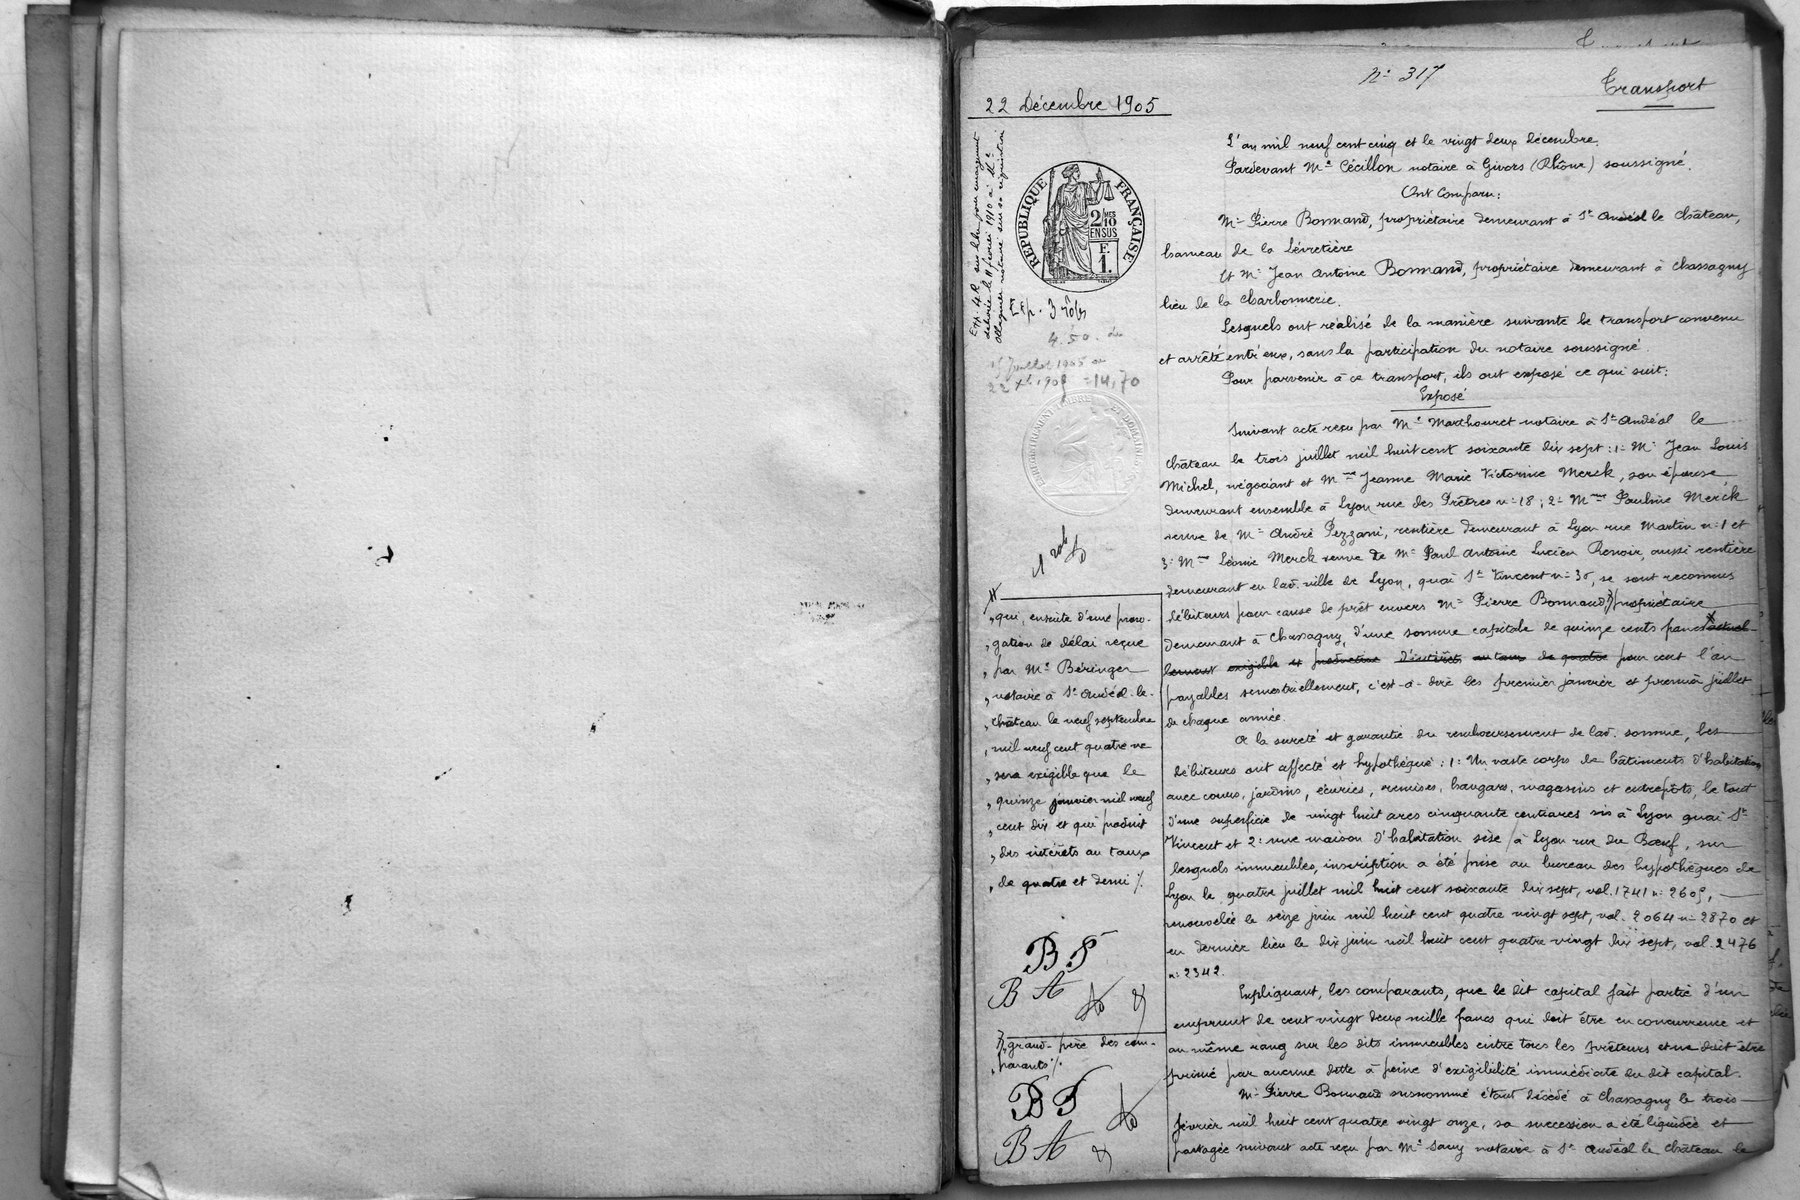 N° 317
Transport
22 Décembre 1905
L'an mil neuf cent cinq et le vingt deux décembre.
Pardevant Me Cécillon notaire à Givors (Rhône) soussigné.
Ont Comparu:
Mr Pierre Bonnand, propriétaire demeurant à St Andéol le Château,
hameau de la Lévretière
Et Mr Jean Antoine Bonnand, propriétaire demeurant à Chassagny
lieu de la Charbonnerie.
Lesquels ont réalisé de la manière suivante le transport convenu
et arrêté entr'eux, sans la participation du notaire soussigné.
Pour parvenir à ce transport, ils ont exposé ce qui suit:
Exposé
Suivant acte reçu par Me Marthouret notaire à St Andéol le
Château le trois juillet mil huit cent soixante dix sept: 1° Mr Jean Louis
Michel, négociant et Mme Jeanne Marie Victorine Merck, son épouse
demeurant ensemble à Lyon rue des Prêtres n° 18; 2° Mme Pauline Merck
veuve de Mr André Pezzani, rentière demeurant à Lyon rue Martin n° 1 et
3° Mme Léonie Merck veuve de Mr Paul Antoine Lucien Renoir, aussi rentière
demeurant en lad. ville de Lyon, quai St Vincent n° 30, se sont reconnus
débiteurs pour cause de prêt envers Mr Pierre Bonnand, propriétaire
demeurant à Chassagny, d'une somme capitale de quinze cents francs actuel-
lement exigible et productive d'intérêts au taux de quatre pour cent l'an
payables semestriellement, c'est-à-dire les premier janvier et premier juillet
de chaque année.
A la sureté et garantie du remboursement de lad. somme, les
débiteurs ont affecté et hypothéqué: 1° Un vaste corps de bâtiments d'habitation
avec cours, jardins, écuries, remises, hangars, magasins et entrepôts le tout
d'une superficie de vingt huit ares cinquante centiares sis à Lyon quai St
Vincent et 2° une maison d'habitation sise à Lyon rue du Bœuf, sur
lesquels immeubles, inscription a été prise au bureau des hypothèques de
Lyon le quatre juillet mil huit cent soixante dix sept, vol. 1741 n° 2605,
renouvelée le seize juin mil huit cent quatre vingt sept, vol. 2064 n° 2870 et
en dernier lieu le dix juin mil huit cent quatre vingt dix sept, vol. 2476
n° 2342.
Expliquant, les comparants, que le dit capital fait partie d'un
emprunt de cent vingt deux mille francs qui doit être en concurrence et
au même rang sur les dits immeubles entre tous les prêteurs et ne doit être
primé par aucune dette à peine d'exigibilité immédiate du dit capital.
Mr Pierre Bonnand susnommé étant décédé à Chassagny le trois
février mil huit cent quatre vingt onze, sa succession a été liquidée et
partagée suivant acte reçu par Me Sauy notaire à St Andéol le Château le
RÉPUBLIQUE FRANÇAISE
2/10
EN SUS
F.
1.
Exp. 3 rôles
4.50
15 Juillet 1905 au
22 Xbre 1905 = 14,70
ENREGISTREMENT TIMBRE ET DOMAINES
qui, ensuite d'une proro-
gation de délai reçue
par Me Béringer
notaire à St Andéol-le-
Château le neuf septembre
mil neuf cent quatre ne
sera exigible que le
quinze janvier mil neuf
cent dix et qui produit
des intérêts au taux
de quatre et demi %.
B P
B A
grand-père des com-
parants %.
B P
B A